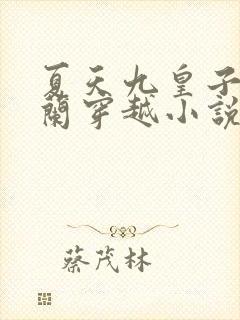 夏天九皇子
蘭穿越小說
蔡茂林